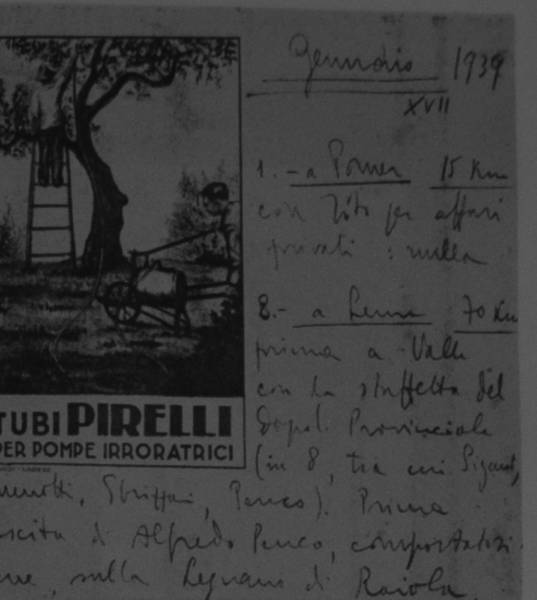 Gennaio 1939
XVII
1. - a Pomer 15 Km
con Tito per affari
privati : nulla
8. - a 70 Km
prima a Valle
con la staffetta del
Dopol. Provinciale
(in 8, tra cui
TUBI PIRELLI
PER POMPE IRRORATRICI
Prima
scita di Alfredo Penco, comportatosi
sulla Legnano di Raiola